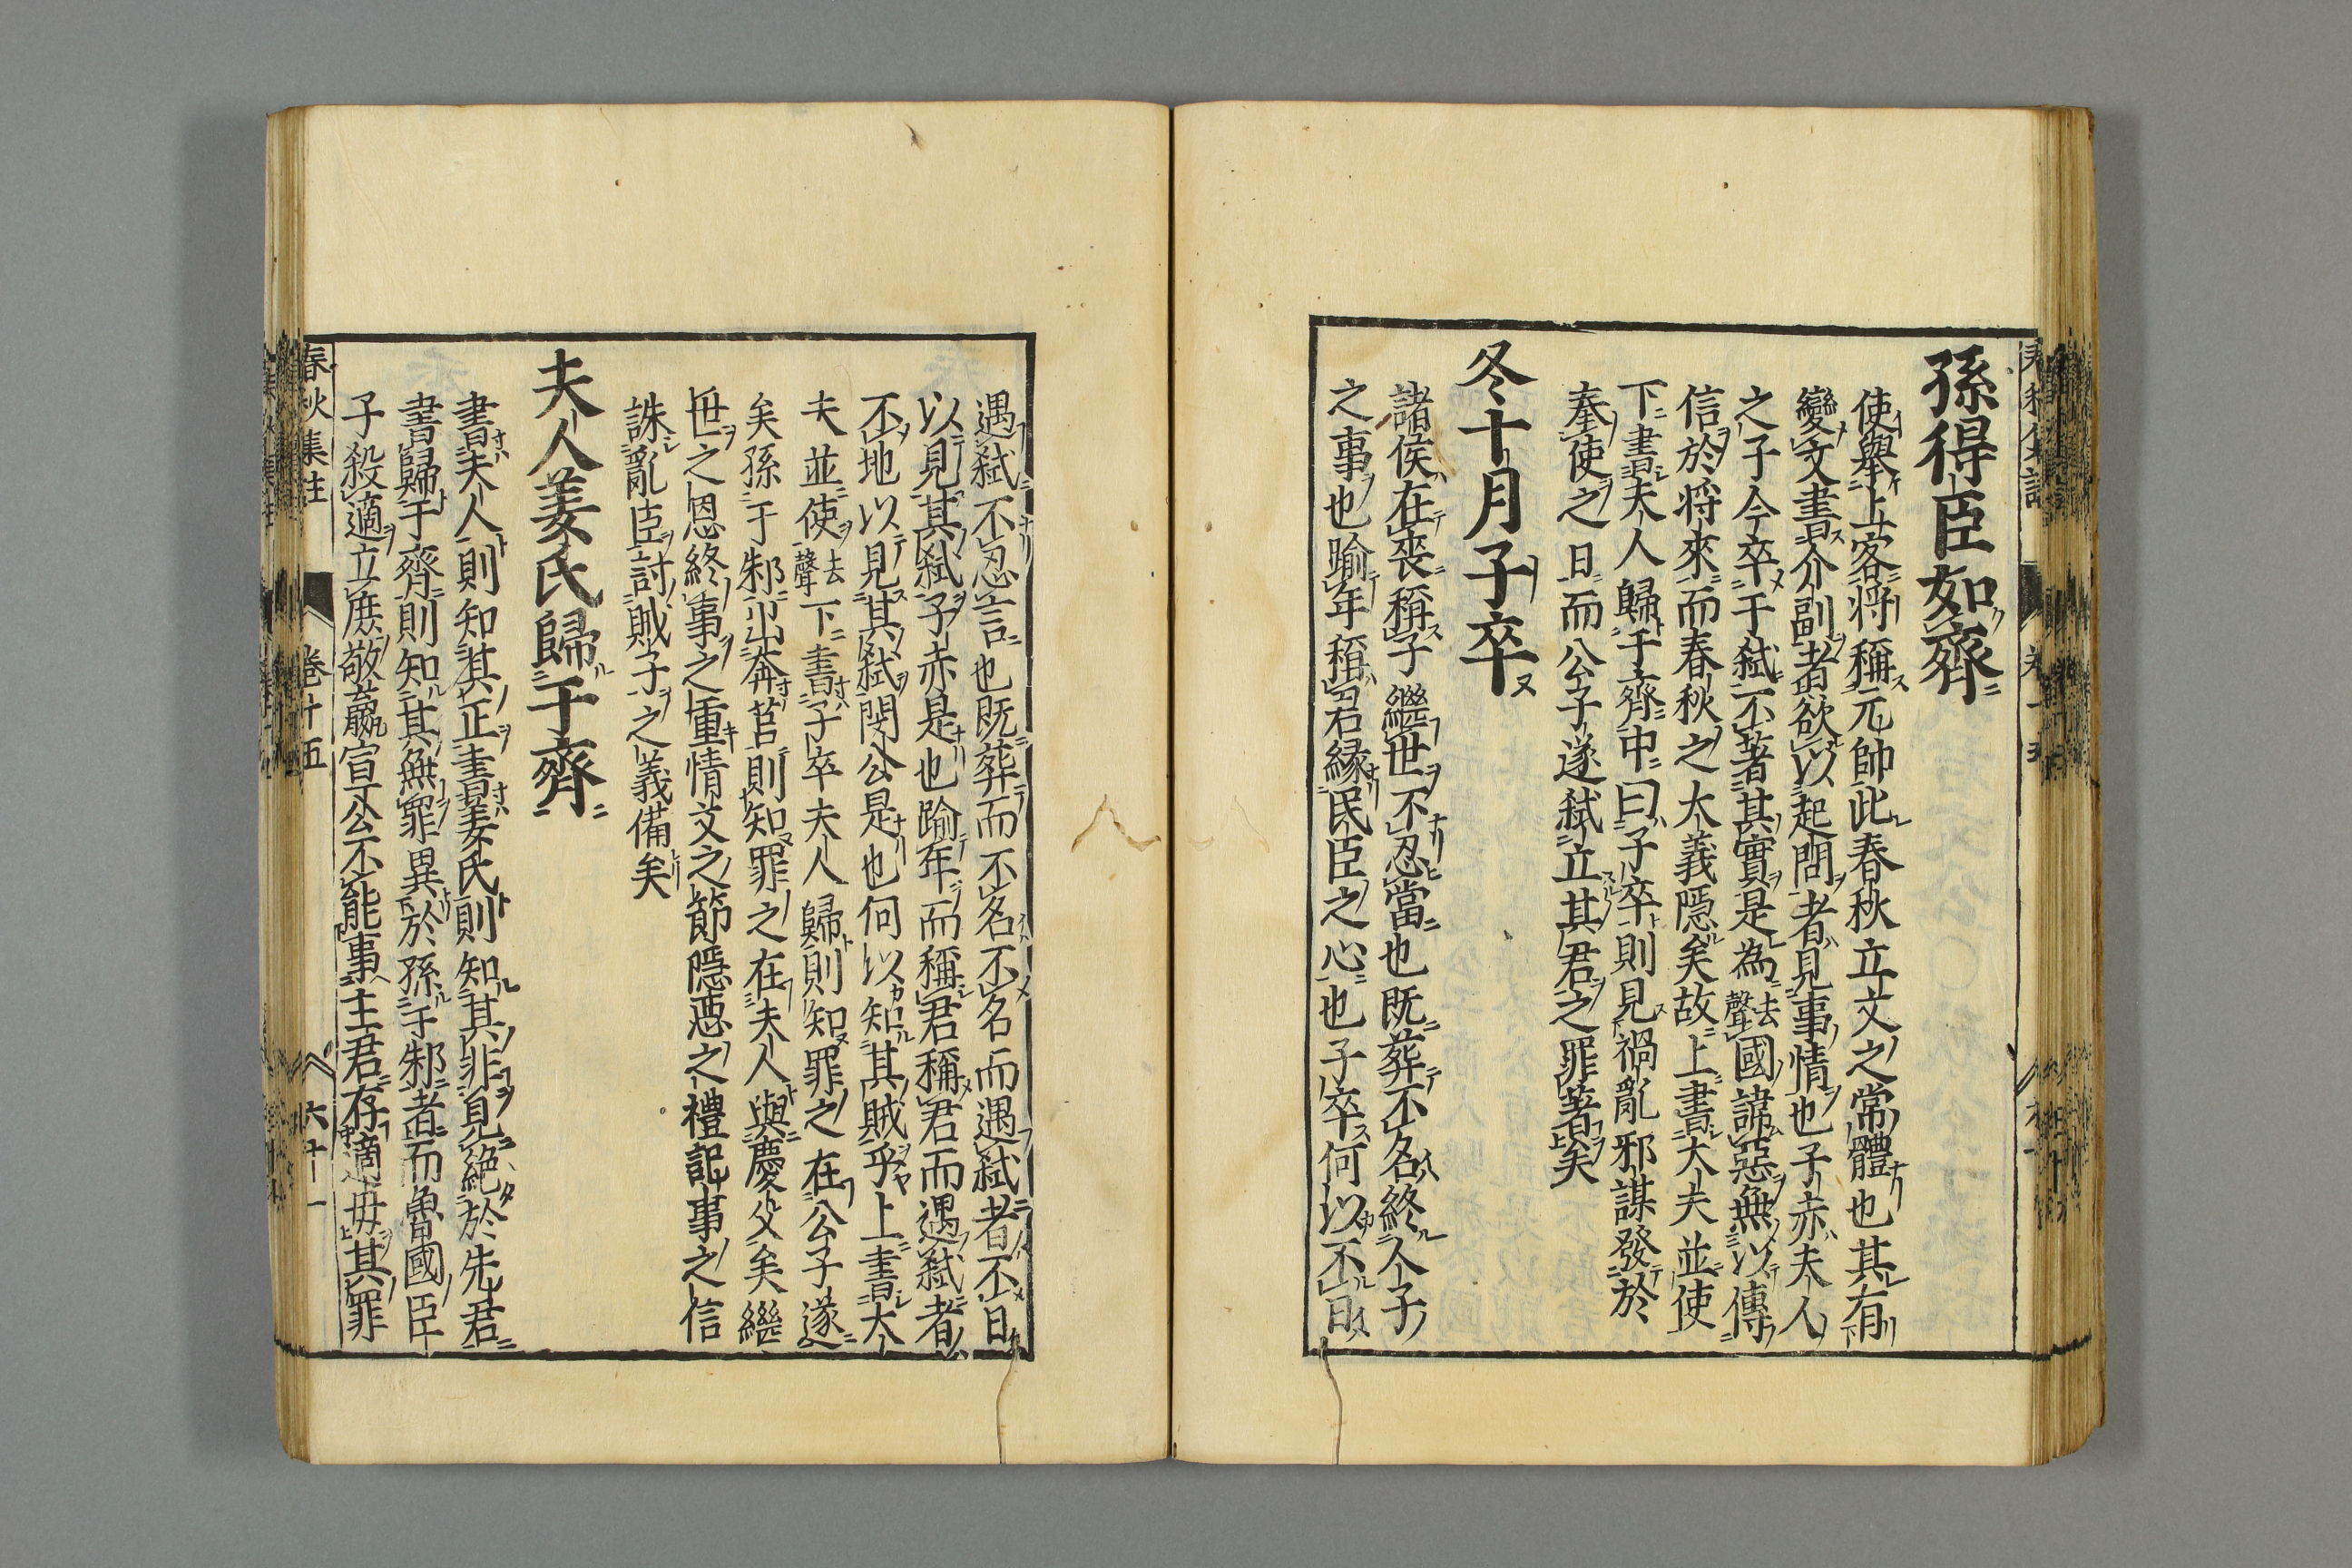 孫得臣如齊
使舉上客將稱元帥此春秋立文之常體也其有
變文書介副者欲以起問者見事情也子赤夫人
之子今卒于弑不著其實是為去聲國諱惡無以傳
信於將來而春秋之大義隱矣故上書大夫並使
下書夫人歸于齊中曰子卒則見禍亂邪謀發於
奉使之日而公子遂弑立其君之罪著矣
冬十月子卒
諸侯在喪稱子繼世不忍當也既葬不名終人子
之事也踰年稱君緣民臣之心也子卒何以不日
遇弑不忍言也既葬而不名不名而遇弑者不日
以見其弑子赤是也踰年而稱君稱君而遇弑者
不地以見其弑閔公是也何以知其賊乎上書大
夫並使去聲下書子卒夫人歸則知罪之在公子遂
矣孫于邾出奔莒則知罪之在夫人與慶父矣繼
世之恩終事之重情文之節隱惡之禮記事之信
誅亂臣討賊子之義備矣
夫人姜氏歸于齊
書夫人則知其正書姜氏則知其非見絕於先君
書歸于齊則知其無罪異於孫于邾者而魯國臣
子殺適立庶敬嬴宣公不能事主君存適母其罪
春秋集註 卷十五 六十一